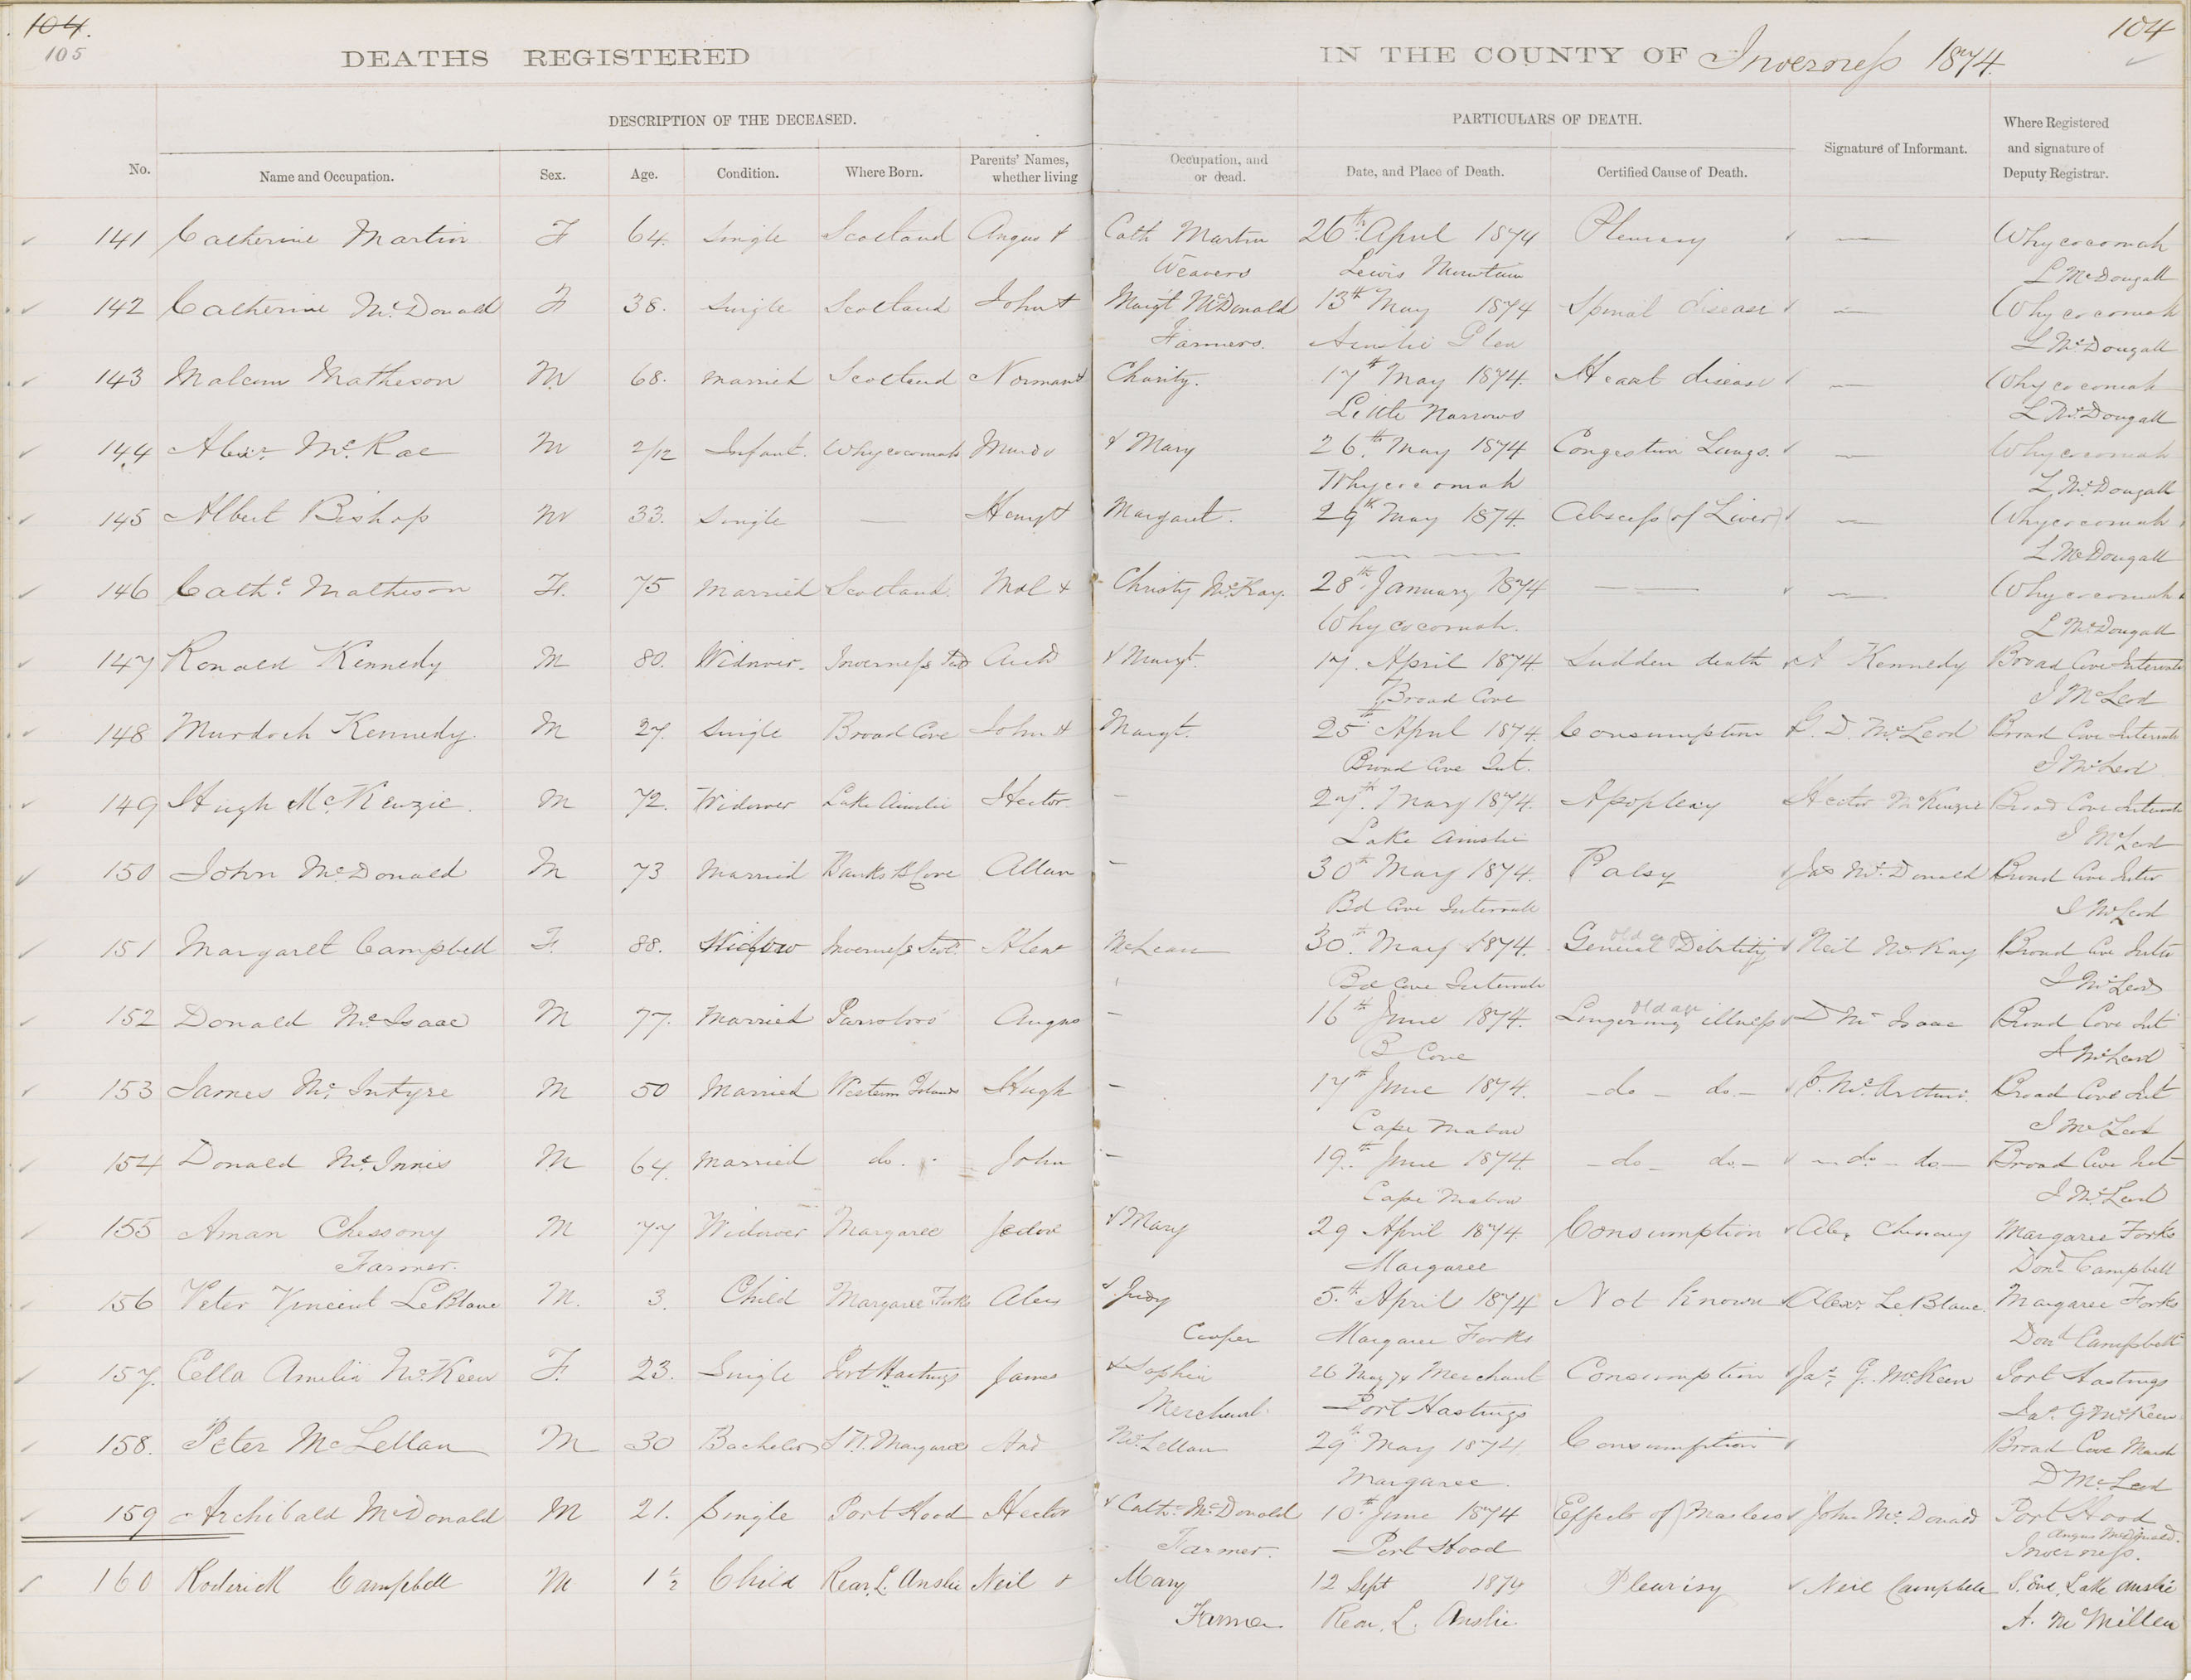 104.
105
104
DEATHS REGISTERED IN THE COUNTY OF Inverness 1874.
DESCRIPTION OF THE DECEASED. PARTICULARS OF DEATH.
No. Name and Occupation. Sex. Age. Condition. Where Born. Parents' Names, whether living Occupation, and or dead. Date, and Place of Death. Certified Cause of Death. Signature of Informant. Where Registered and signature of Deputy Registrar.
141 Catherine Martin F 64. Single Scotland Angus & Cath Martin 26th April 1874 Pleurisy — Whycocomah
Weavers Lewis Mountain L McDougall
142 Catherine McDonald F 38. Single Scotland John & Margt McDonald 13th May 1874 Spinal disease — Whycocomah
Farmers. Ainslie Glen L McDougall
143 Malcum Matheson M 68. Married Scotland Norman & Charity. 17th May 1874. Heart disease — Whycocomah
Little Narrows L McDougall
144 Alexr McRae M 2/12 Infant. Whycocomah Murdo & Mary 26th May 1874 Congestion Lungs. — Whycocomah
Whycocomah L McDougall
145 Albert Bishop M 33. Single — Henry & Margaret. 29th May 1874. Abscess (of Liver) — Whycocomah
— — L McDougall
146 Cathe Matheson F. 75 Married Scotland. Mal & Christy McKay. 28th January 1874 — — Whycocomah
Whycocomah. L McDougall
147 Ronald Kennedy M 80. Widower. Inverness Archd & Margt. 17. April 1874. Sudden death A Kennedy Broad Cove Intervale
Broad Cove J McLeod
148 Murdoch Kennedy. M 27. Single Broad Cove John & Margt. 25th April 1874. Consumption D. McLeod Broad Cove Intervale
Broad Cove Int. J McLeod
149 Hugh McKenzie. M 72. Widower Lake Ainslie Hector. — 27th. May 1874. Apoplexy Hector McKenzie Broad Cove Intervale
Lake Ainslie J McLeod
150 John McDonald M 73 Married Banks B Cove Allan — 30th May 1874. Palsy Jas McDonald Broad Cove Inter
Bd Cove Intervale J McLeod
151 Margaret Campbell F. 88. Widow Inverness Scot. Alexr McLean 30th. May 1874. old age General Debility Neil McKay Broad Cove Inter
Bd Cove Intervale J McLeod
152 Donald McIsaac M 77. Married Parrsboro Angus — 16th June 1874. old age Lingering illness D McIsaac Broad Cove Int
B Cove J McLeod
153 James McIntyre M 50 Married Western Islands Hugh — 17th June 1874. do do C. McArthur. Broad Cove Int
Cape Mabou J McLeod
154 Donald McInnis M 64. Married do. John — 19th June 1874. do do do do Broad Cove Int
Cape Mabou J McLeod
155 Aman Chessony M 77 Widower Margaree & Mary 29 April 1874 Consumption Alex Margaree Forks
Farmer. Margaree Dond Campbell
156 Peter Vincent LeBlanc M. 3. Child Margaree Forks Alex & Judy 5th April 1874 Not Known Alexr LeBlanc. Margaree Forks
Cooper Margaree Forks Dond Campbell
157. Ella Amelia McKeen F. 23. Single Port Hastings James & Sophia 26 May 74 Merchant Consumption Jas. G. McKeen Port Hastings
Merchant. Port Hastings Jas. G McKeen
158. Peter McLellan M 30 Bachelor S.W. Margaree And McLellan 29th May 1874. Consumption Broad Cove Marsh
Margaree. D McLeod
159 Archibald McDonald M 21. Single Port Hood Hector & Cathe McDonald 10th June 1874 Effects of Measles John McDonald Port Hood
Farmer. Port Hood Angus McDonald.
Inverness.
160 Roderick Campbell M 1 1/2 Child Rear, L. Anslie Neil & Mary 12 Sept 1874 Pleurisy Neil Campbell S. End, Lake Anslie
Farmer Rear, L. Anslie A. McMillen